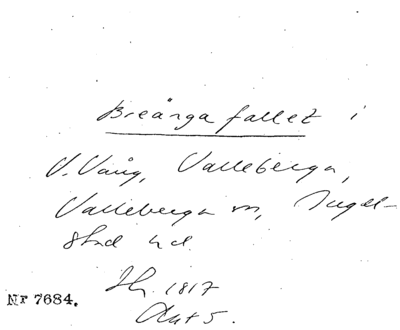 Breånga fallet i
V. Vång, Valleberga,
Valleberga sn, Ingel-
stad hd
1817
Akt 5.
Nr 7684.